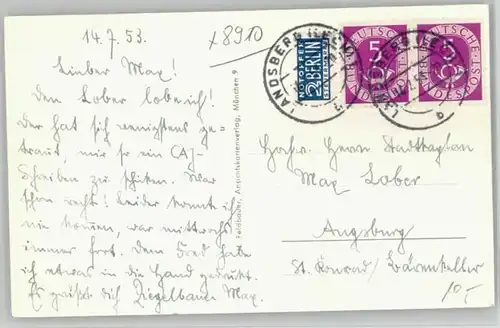 14.7.53.
x8910
Lieber Max!
Den Lober lobe ich!
Der hat sich wenigstens ge-
traut, mir so ein CAJ-
Schreiben zu schicken. War
schon recht! Leider konnte ich
nie kommen, war mittwochs
immer fort. Dem Fred habe
ich etwas in die Hand gedrückt.
Es grüßt dich Ziegelbauer Max.
Feldbauer, Ansichtskartenverlag, München 9
LANDSBERG (LECH)
NOTOPFER
2 BERLIN
STEUERMARKE
DEUTSCHE POST
5
LANDSBERG (LECH)
DEUTSCHE POST
5
Hochw. Herrn Stadtkaplan
Max Lober
Augsburg
St. Konrad / Bärenkeller
10.-